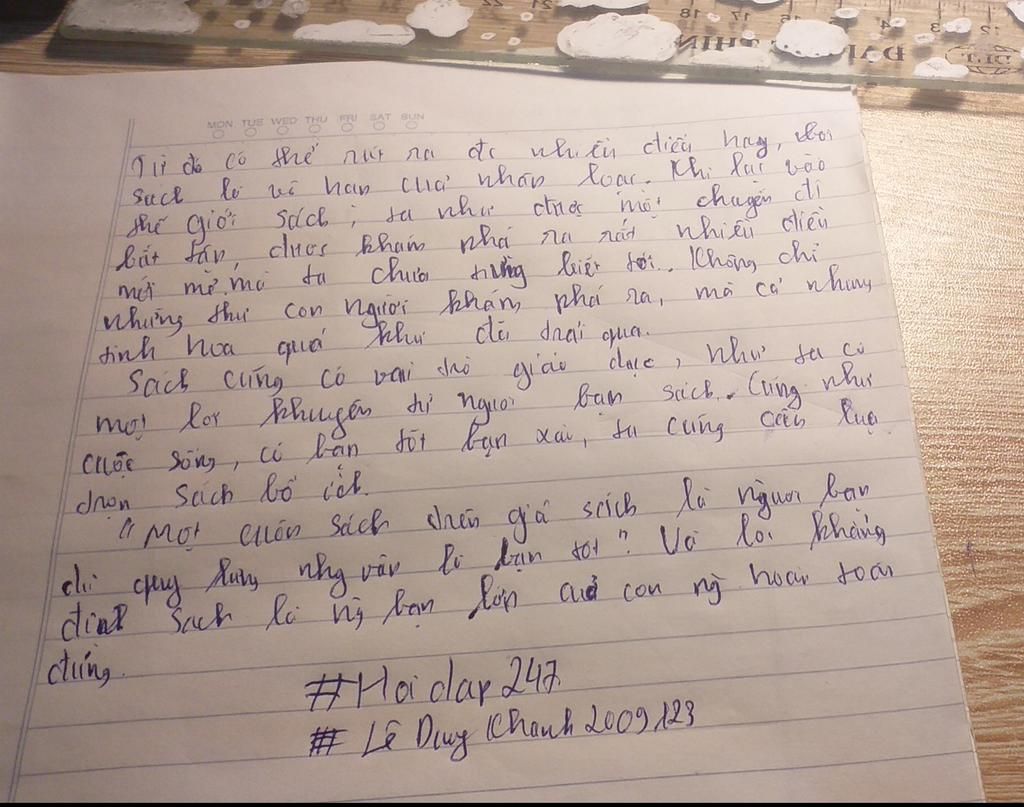 MON TUE WED THU FRI SAT SUN
Từ đó có thể rút ra đc nhiều điều hay, bởi
sách là vô hạn của nhân loại. Khi lại vào
thế giới sách, ta như được một chuyến đi
bất tận, được khám phá ra rất nhiều điều
mới mẻ mà ta chưa từng biết tới. Không chỉ
những thứ con người khám phá ra, mà cả những
tinh hoa quá khứ đã trải qua.
Sách cũng có vai trò giáo dục, như ta có
một lời khuyên từ người bạn sách. Cũng như
cuộc sống, có bạn tốt bạn xấu, ta cũng cần lựa
chọn sách bổ ích.
"Một cuốn sách trên giá sách là người bạn
quay lưng nhg vẫn là bạn tốt". Và lời khẳng
định sách là ng bạn lớn của con ng hoàn toàn
đúng.
#Hoidap247
# Lê Duy Khanh2009123